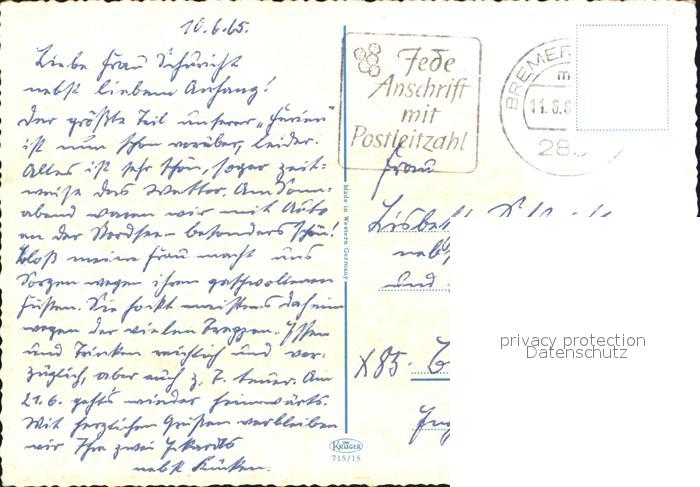 10.6.65.
Liebe Frau Schuricht
nebst liebem Anhang!
Der größte Teil unserer „Ferien“
ist nun schon vorüber, leider.
Alles ist sehr schön, sogar zeit-
weise das Wetter. Am Sonn-
abend waren wir mit Auto
an der Nordsee - besonders schön!
Bloß meine Frau macht uns
Sorgen wegen ihren geschwollenen
Füßen. Sie hockt meistens daheim
wegen der vielen Treppen. Essen
und Trinken reichlich und vor-
züglich, aber auch z. T. teuer. Am
21.6. geht's wieder heimwärts.
Mit herzlichen Grüßen verbleiben
wir Ihre zwei
nebst
Made in Western Germany
KRÜGER
715/15
Jede
Anschrift
mit
Postleitzahl
BREMER
11.6.6
28
Frau
Lisbeth
neb
und
X85.
privacy protection
Datenschutz